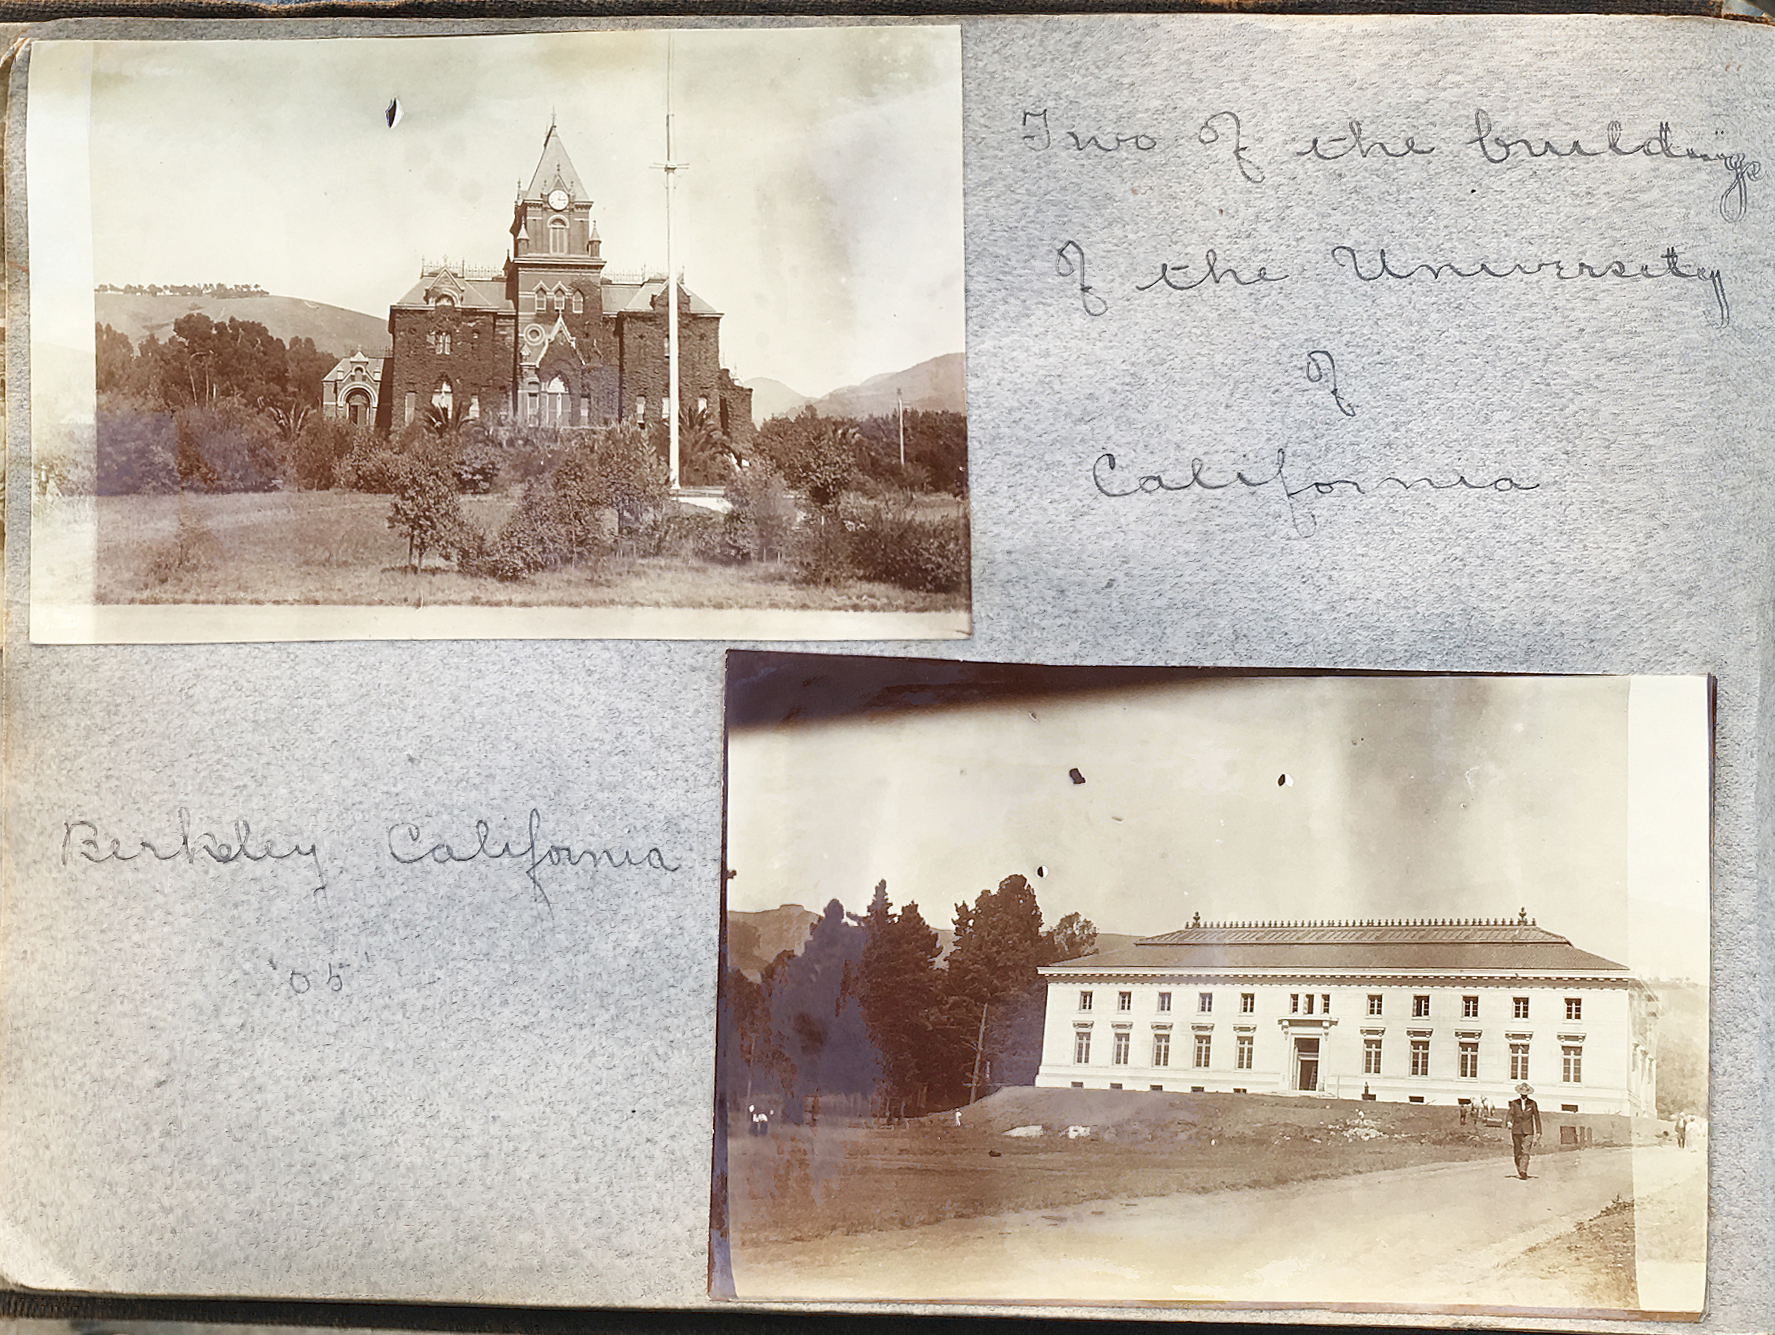 Two of the buildings
of the University
of
California
Berkeley California
'05'